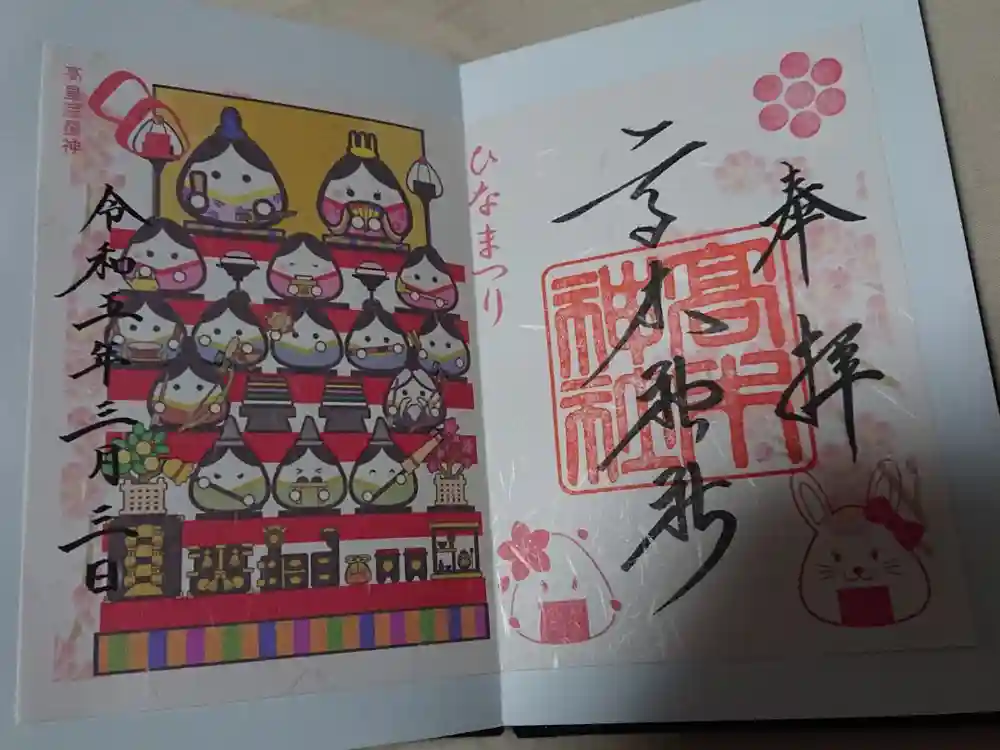 奉拝
高木神社
高木神社
ひなまつり
令和五年三月三日